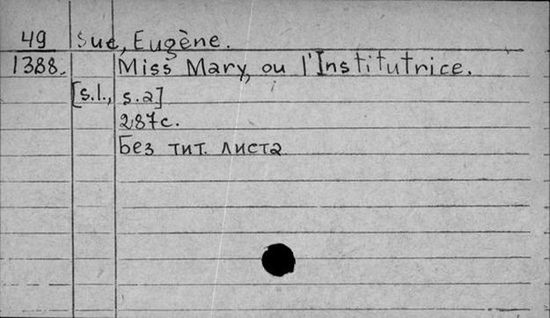 49 Sue, Eugène.
1388. Miss Mary, ou l'Institutrice.
[s.l., s.a]
287c.
Без тит. листа